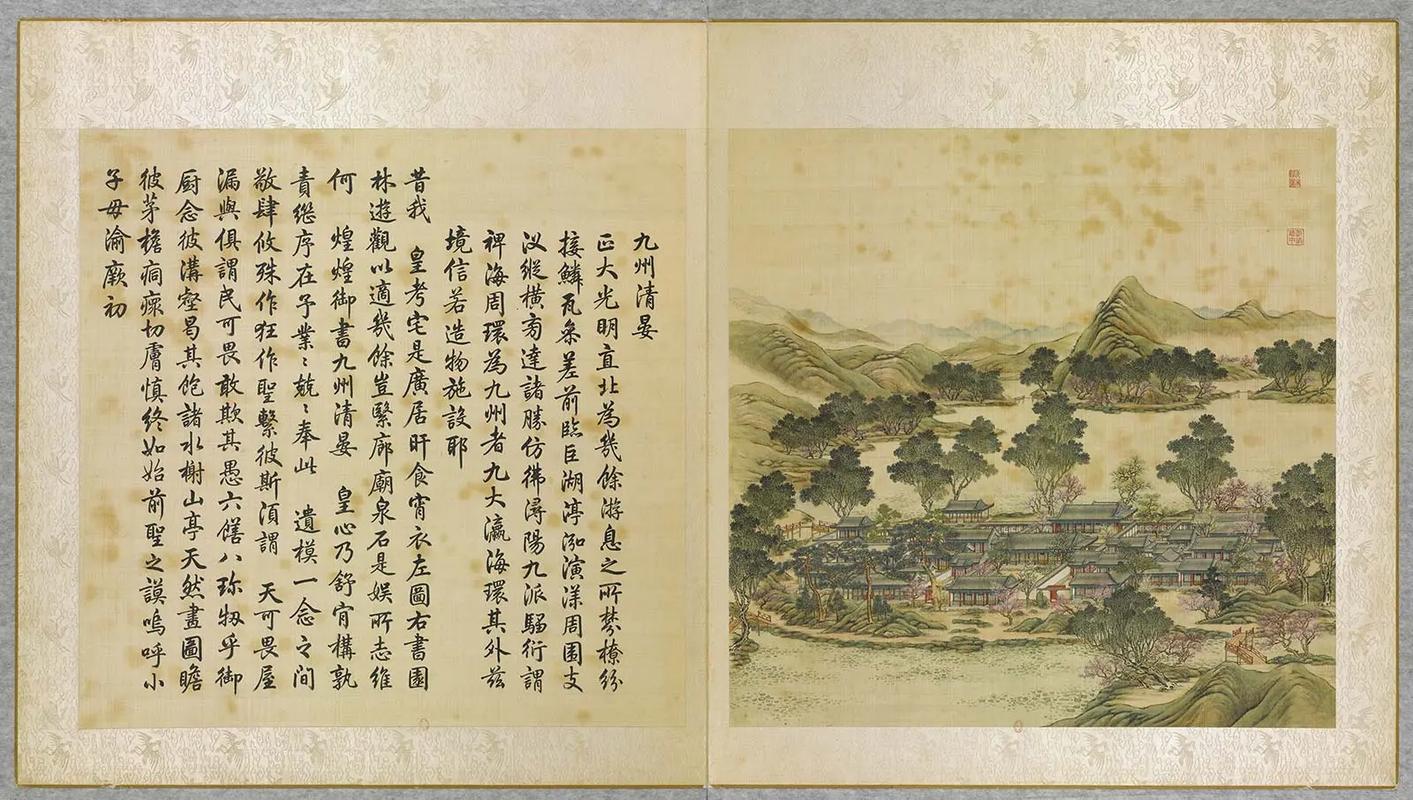 九州清晏
正大光明直北為幾餘游息之所棼橑紛
接鱗瓦參差前臨巨湖渟泓演漾周圍支
汊縱横旁達諸勝仿彿潯陽九派騶衍謂
裨海周環為九州者九大瀛海環其外茲
境信若造物施設耶
昔我 皇考宅是廣居旰食宵衣左圖右書園
林遊觀以適幾餘豈繄廊廟泉石是娱所志維
何 煌煌御書九州清晏 皇心乃舒肯構孰
責繼序在予業〻兢〻奉此 遺模一念之間
敬肆攸殊作狂作聖繫彼斯須謂 天可畏屋
漏與俱謂民可畏敢欺其愚六膳八珍牣乎御
厨念彼溝壑曷其飽諸水榭山亭天然畫圖瞻
彼茅檐痌瘝切膚慎終如始前聖之謨嗚呼小
子毋渝厥初